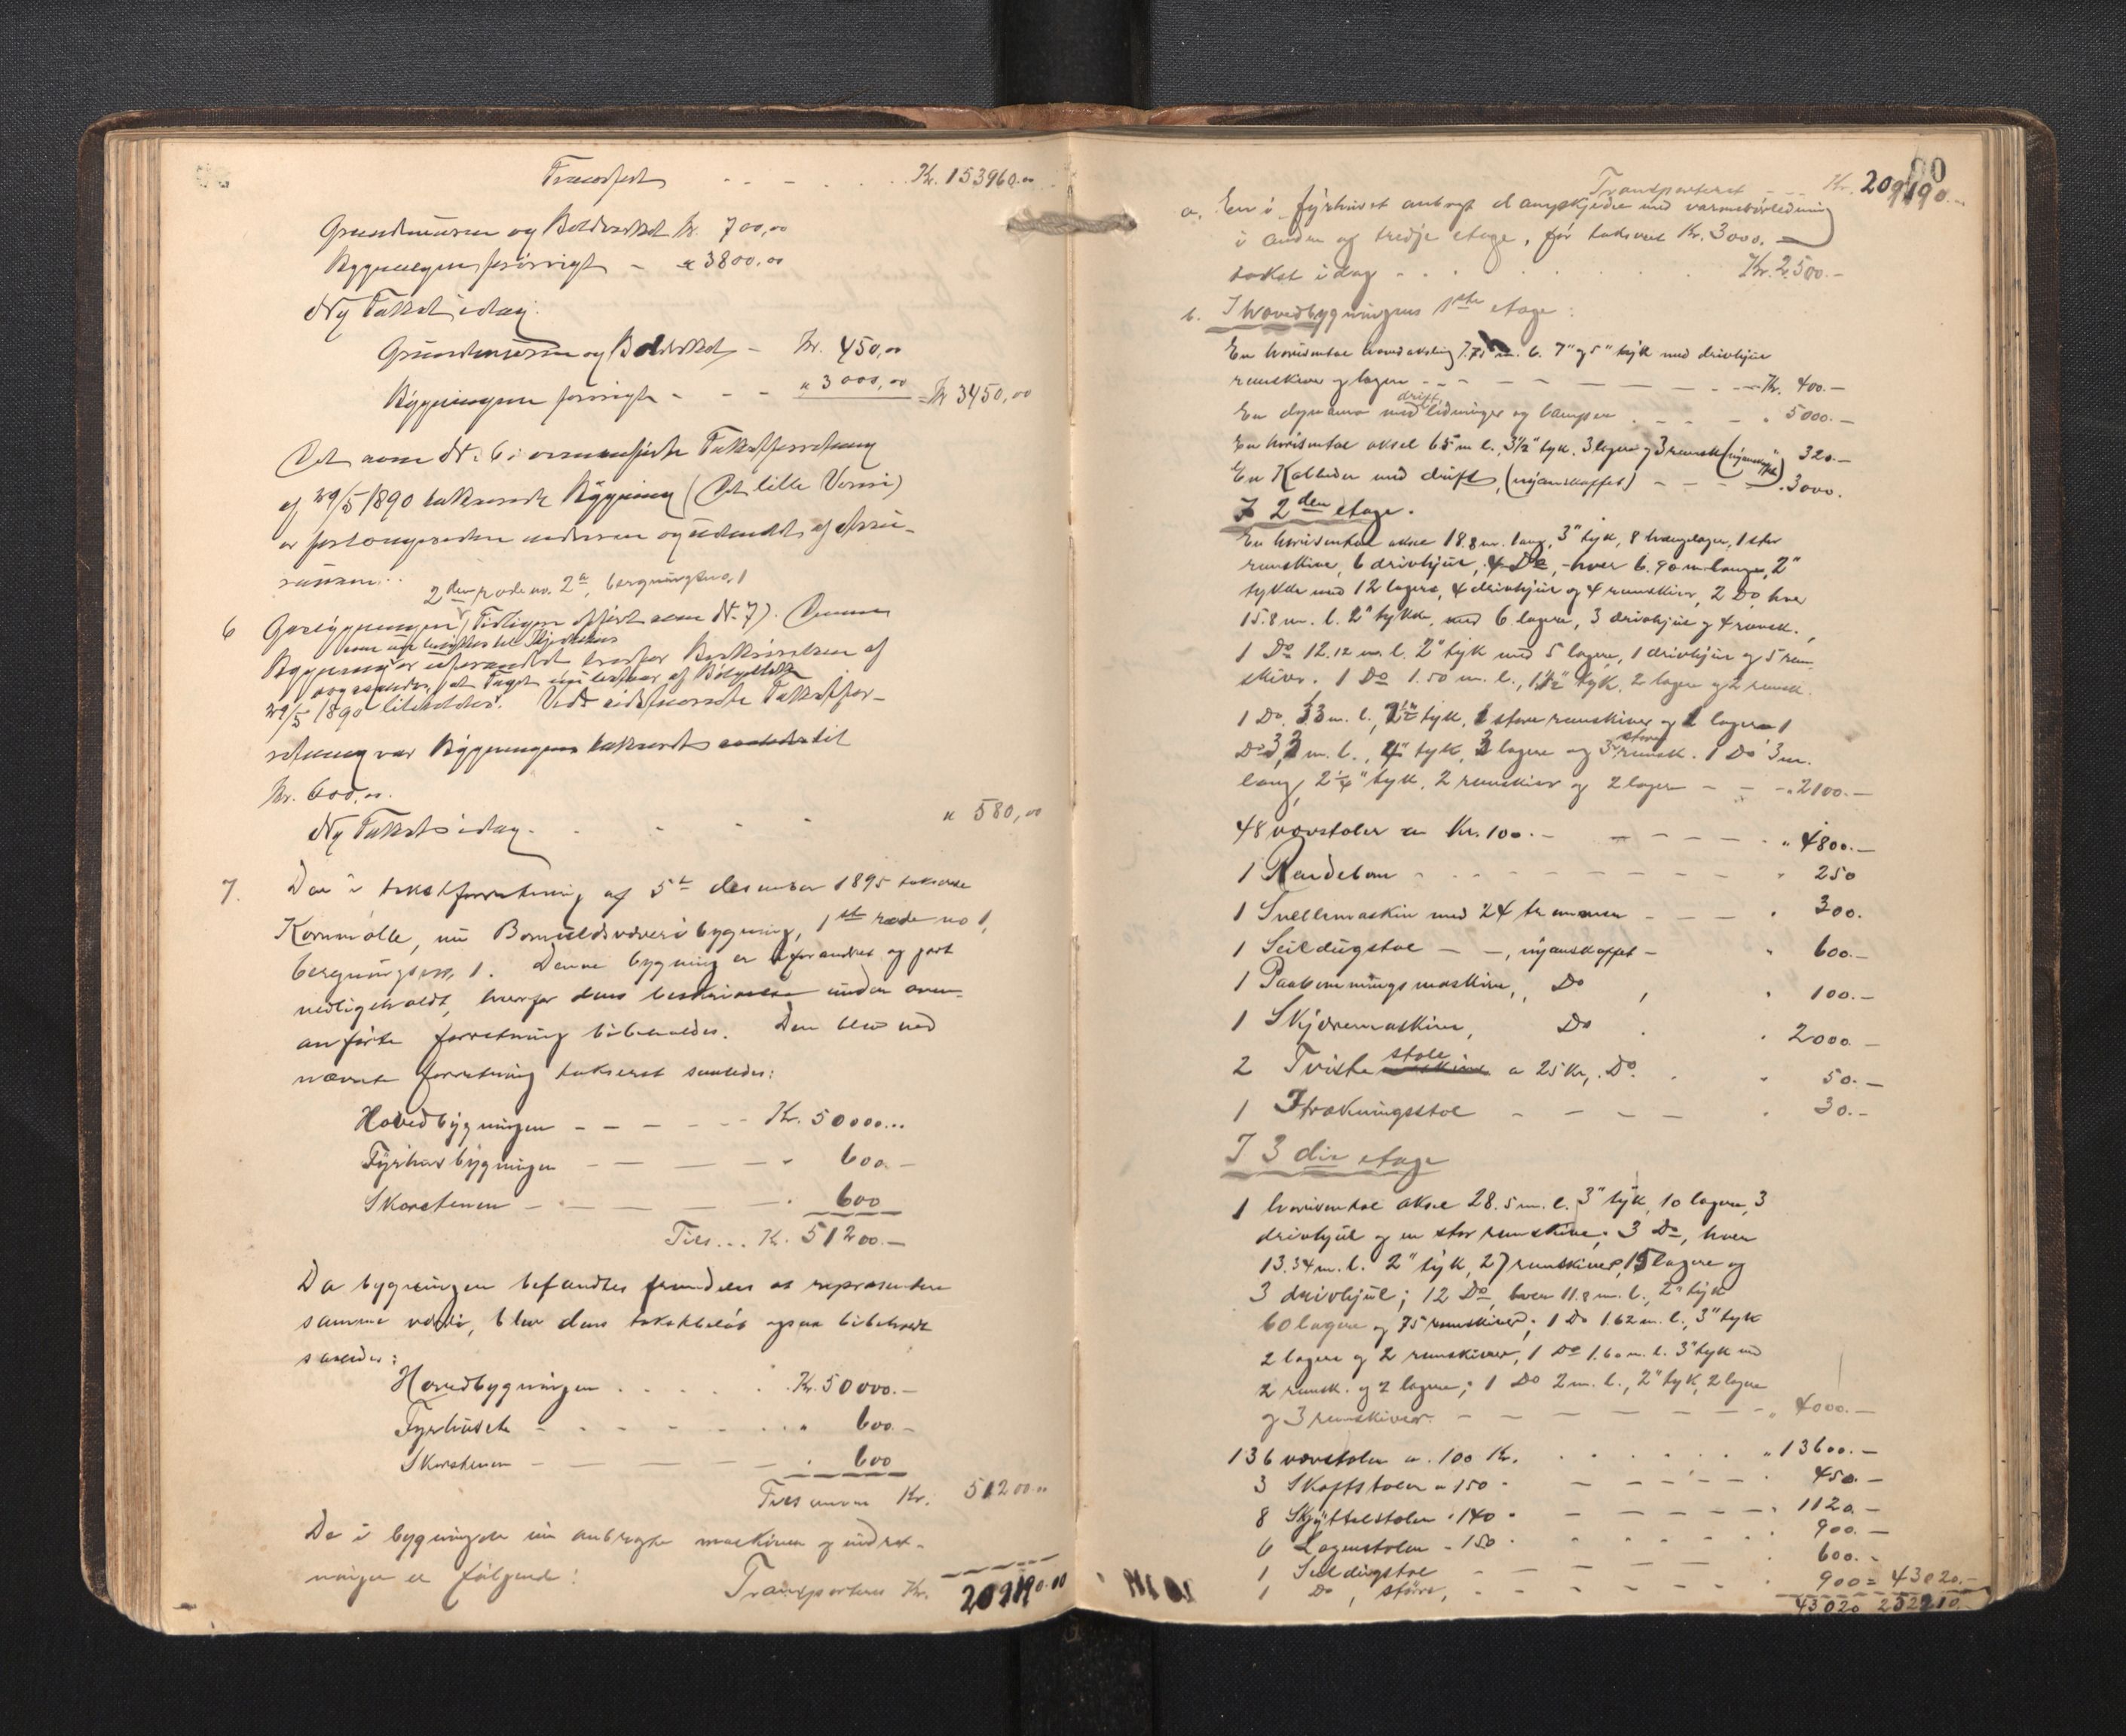 Transport . . . . . Kr. 153960.00
Grundmuren og Boldverket Kr. 700,00
Bygningen forøvrigt - " 3800,00
Ny Takst idag:
Grundmuren og Boldverket - Kr. 450,00
Bygningen forøvrigt - - - " 3000,00 = Kr 3450,00
Det som No. 6 i ovenanførte Takstforretning
af 29/5 1890 takserede Bygning (Det lille Væveri)
er
2den rode no. 2a, bergningsno. 1
6 (Tidligere opført som No. 7). Denne
som nu benyttes til
Bygning er uforandret hvorfor Beskrivelsen af
29/5 1890 bibeholdes. Ved sidstnævnte Takstfor-
retning var Bygningen takseret til
Kr. 600,00.
Ny Takst idag. . . . " 580,00
7. Den i takstforretning af 5te desember 1895 takserte
Kornmølle, nu Bomuldsveveribygning, 1ste rode no 1,
bergningsno. 1. Denne bygning er uforandret og godt
vedligeholdt, hvorfor dens beskrivelse under oven-
anførte forretning bibeholdes. Den blev ved
nævnte forretning takseret saaledes:
Hovedbygningen - - - - - Kr. 50000...
Fyrhusbygningen - - - - " 600.-
Skorstenen - - - - " 600
Tils... Kr. 51200.-
Da bygningen befandtes fremdeles at representere
samme værdi, blev dens takstbeløb ogsaa bibeholdt
saaledes:
Hovedbygningen . . . . Kr. 50000.-
Fyrhuset - - - - - " 600.-
Skorstenen - - - - " 600
Tilsammen Kr. 51200.00
De i bygningen nu anbragte maskiner og indret-
ninger er følgende:
Transporteres Kr. 209190.00
80
Transporteret - - - Kr. 209190.-
a. En i fyrhuset anbragt dampkjedel med varmerørledning
i anden og tredje etage, før takseret Kr. 3000.-
takst idag . . . . . Kr. 2500.-
b. I hovedbygningens 1ste etage:
En horisontal hovedaksling 7.75 m. l. 7" og 5" tyk med drivhjul
remskiver og lagere - - - - - - Kr. 400.-
En dynamo med drift, ledninger og lamper . . . " 5000.-
En horisontal aksel 65 m l. 3½" tyk. 3 lagere og 3 remsk (nyanskaffet) " 320.-
En Kalander med drift, (nyanskaffet) - - - " 3000.
I 2den etage.
En horisontal aksel 18.8 m. lang, 3" tyk, 8 hængelager, 1 stor
remskive, 6 drivhjul, 4 Do, hver 6.90 m lange, 2"
tykke med 12 lagere, 4 drivhjul og 4 remskiver, 2 Do hver
15.8 m. l. 2" tykke, med 6 lagere, 3 drivhjul og 4 remsk.,
1 Do 12.12 m. l. 2" tyk med 5 lagere, 1 drivhjul og 5 rem-
skiver. 1 Do 1.50 m. l., 1½" tyk. 2 lagere og 2 remsk.
1 Do. 3.3 m. l., tyk, store remskiver og lagere 1
Do m. l., tyk, lagere og 3 store remsk. 1 Do 3 m.
lang, 2¼" tyk, 2 remskiver og 2 lager - - - " 2100.-
48 vævstoler a Kr. 100.- - - - - " 4800.-
1 Rendebom - - - - - - - " 250
1 Snellemaskin med 24 trommer - - - " 300.
1 Seildugstol - -, nyanskaffet - " 600.-
1 Paabommingsmaskin, Do , " 100.-
1 Skjæremaskin, Do . " 2000.-
2 Tviste stole a 25 Kr, Do. . " 50.-
1 Itrækningsstol - - - - " 30.-
I 3die etage
1 horisontal aksel 28.5 m. l. 3" tyk, 10 lagere, 3
drivhjul og en stor remskive; 3 Do, hver
13.34 m. l. 2" tyk, 27 remskiver, 15 lagere og
3 drivhjul; 12 Do, hver 11.8 m. l., 2" tyk
60 lagere og 75 remskiver; 1 Do 1.62 m. l., 3" tyk
2 lagere og 2 remskiver, 1 Do 1.60 m. l. 3" tyk med
2 remsk. og 2 lagere; 1 Do 2 m. l., 2" tyk, 2 lagere
og 3 remskiver. - - - - - - " 4000.-
136 vævstoler a. 100 Kr. . . . . " 13600.-
3 Skaftstoler a 150 - - - - " 450.-
8 Skyttelstoler " 140 - - - - - " 1120.-
6 Lagenstoler - 150 - . . . . 900.-
1 Seildugstol - - - - - " 600.-
1 Do, større, - - - - - " 900 = 43020.-
43020 252210.-